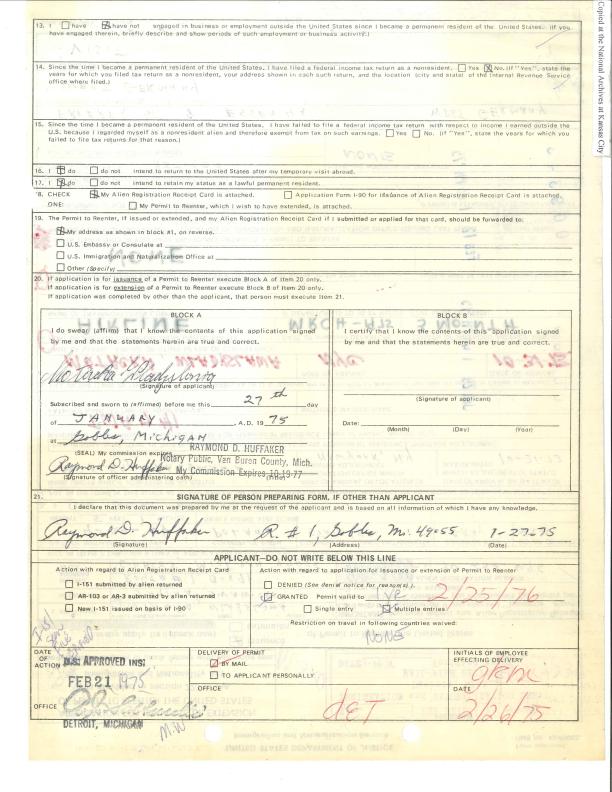 Copied at the National Archives at Kansas City
13. I have have not engaged in business or employment outside the United States since I became a permanent resident of the United States. (If you
have engaged therein, briefly describe and show periods of such employment or business activity.)
14. Since the time I became a permanent resident of the United States, I have filed a federal income tax return as a nonresident. Yes No. (if "Yes", state the
years for which you filed tax return as a nonresident, your address shown in each such return, and the location (city and state) of the Internal Revenue Service
office where filed.)
15. Since the time I became a permanent resident of the United States, I have failed to file a federal income tax return with respect to income I earned outside the
U.S. because I regarded myself as a nonresident alien and therefore exempt from tax on such earnings. Yes No. (if "Yes", state the years for which you
failed to file tax returns for that reason.)
16. I do do not intend to return to the United States after my temporary visit abroad.
17. I do do not intend to retain my status as a lawful permanent resident.
18. CHECK My Alien Registration Receipt Card is attached. Application Form I-90 for issuance of Alien Registration Receipt Card is attached.
ONE: My Permit to Reenter, which I wish to have extended, is attached.
19. The Permit to Reenter, if issued or extended, and my Alien Registration Receipt Card if I submitted or applied for that card, should be forwarded to:
My address as shown in block #1, on reverse.
U.S. Embassy or Consulate at
U.S. Immigration and Naturalization Office at
Other (Specify)
20. If application is for issuance of a Permit to Reenter execute Block A of Item 20 only.
If application is for extension of a Permit to Reenter execute Block B of Item 20 only.
If application was completed by other than the applicant, that person must execute Item 21.
BLOCK A
I do swear (affirm) that I know the contents of this application signed
by me and that the statements herein are true and correct.
(Signature of applicant)
Subscribed and sworn to (affirmed) before me this 27th day
of JANUARY, A.D. 1975
at Gobles, MICHIGAN
(SEAL) My commission expires
RAYMOND D. HUFFAKER
Notary Public, Van Buren County, Mich.
My Commission Expires 10-19-77
Raymond D. Huffaker
(Signature of officer administering oath) (Title)
BLOCK B
I certify that I know the contents of this application signed
by me and that the statements herein are true and correct.
(Signature of applicant)
Date:
(Month) (Day) (Year)
21. SIGNATURE OF PERSON PREPARING FORM, IF OTHER THAN APPLICANT
I declare that this document was prepared by me at the request of the applicant and is based on all information of which I have any knowledge.
Raymond D. Huffaker R. #1, Gobles, Mi. 49055 1-27-75
(Signature) (Address) (Date)
APPLICANT—DO NOT WRITE BELOW THIS LINE
Action with regard to Alien Registration Receipt Card
I-151 submitted by alien returned
AR-103 or AR-3 submitted by alien returned
New I-151 issued on basis of I-90
Action with regard to application for issuance or extension of Permit to Reenter
DENIED (See denial notice for reason(s).)
GRANTED Permit valid to 2/25/76
Single entry Multiple entries
Restriction on travel in following countries waived:
NONE
DATE
OF
ACTION
U.S. APPROVED INS:
FEB 21 1975
OFFICE
DETROIT, MICHIGAN
DELIVERY OF PERMIT
BY MAIL
TO APPLICANT PERSONALLY
OFFICE
DET
INITIALS OF EMPLOYEE
EFFECTING DELIVERY
DATE
2/26/75